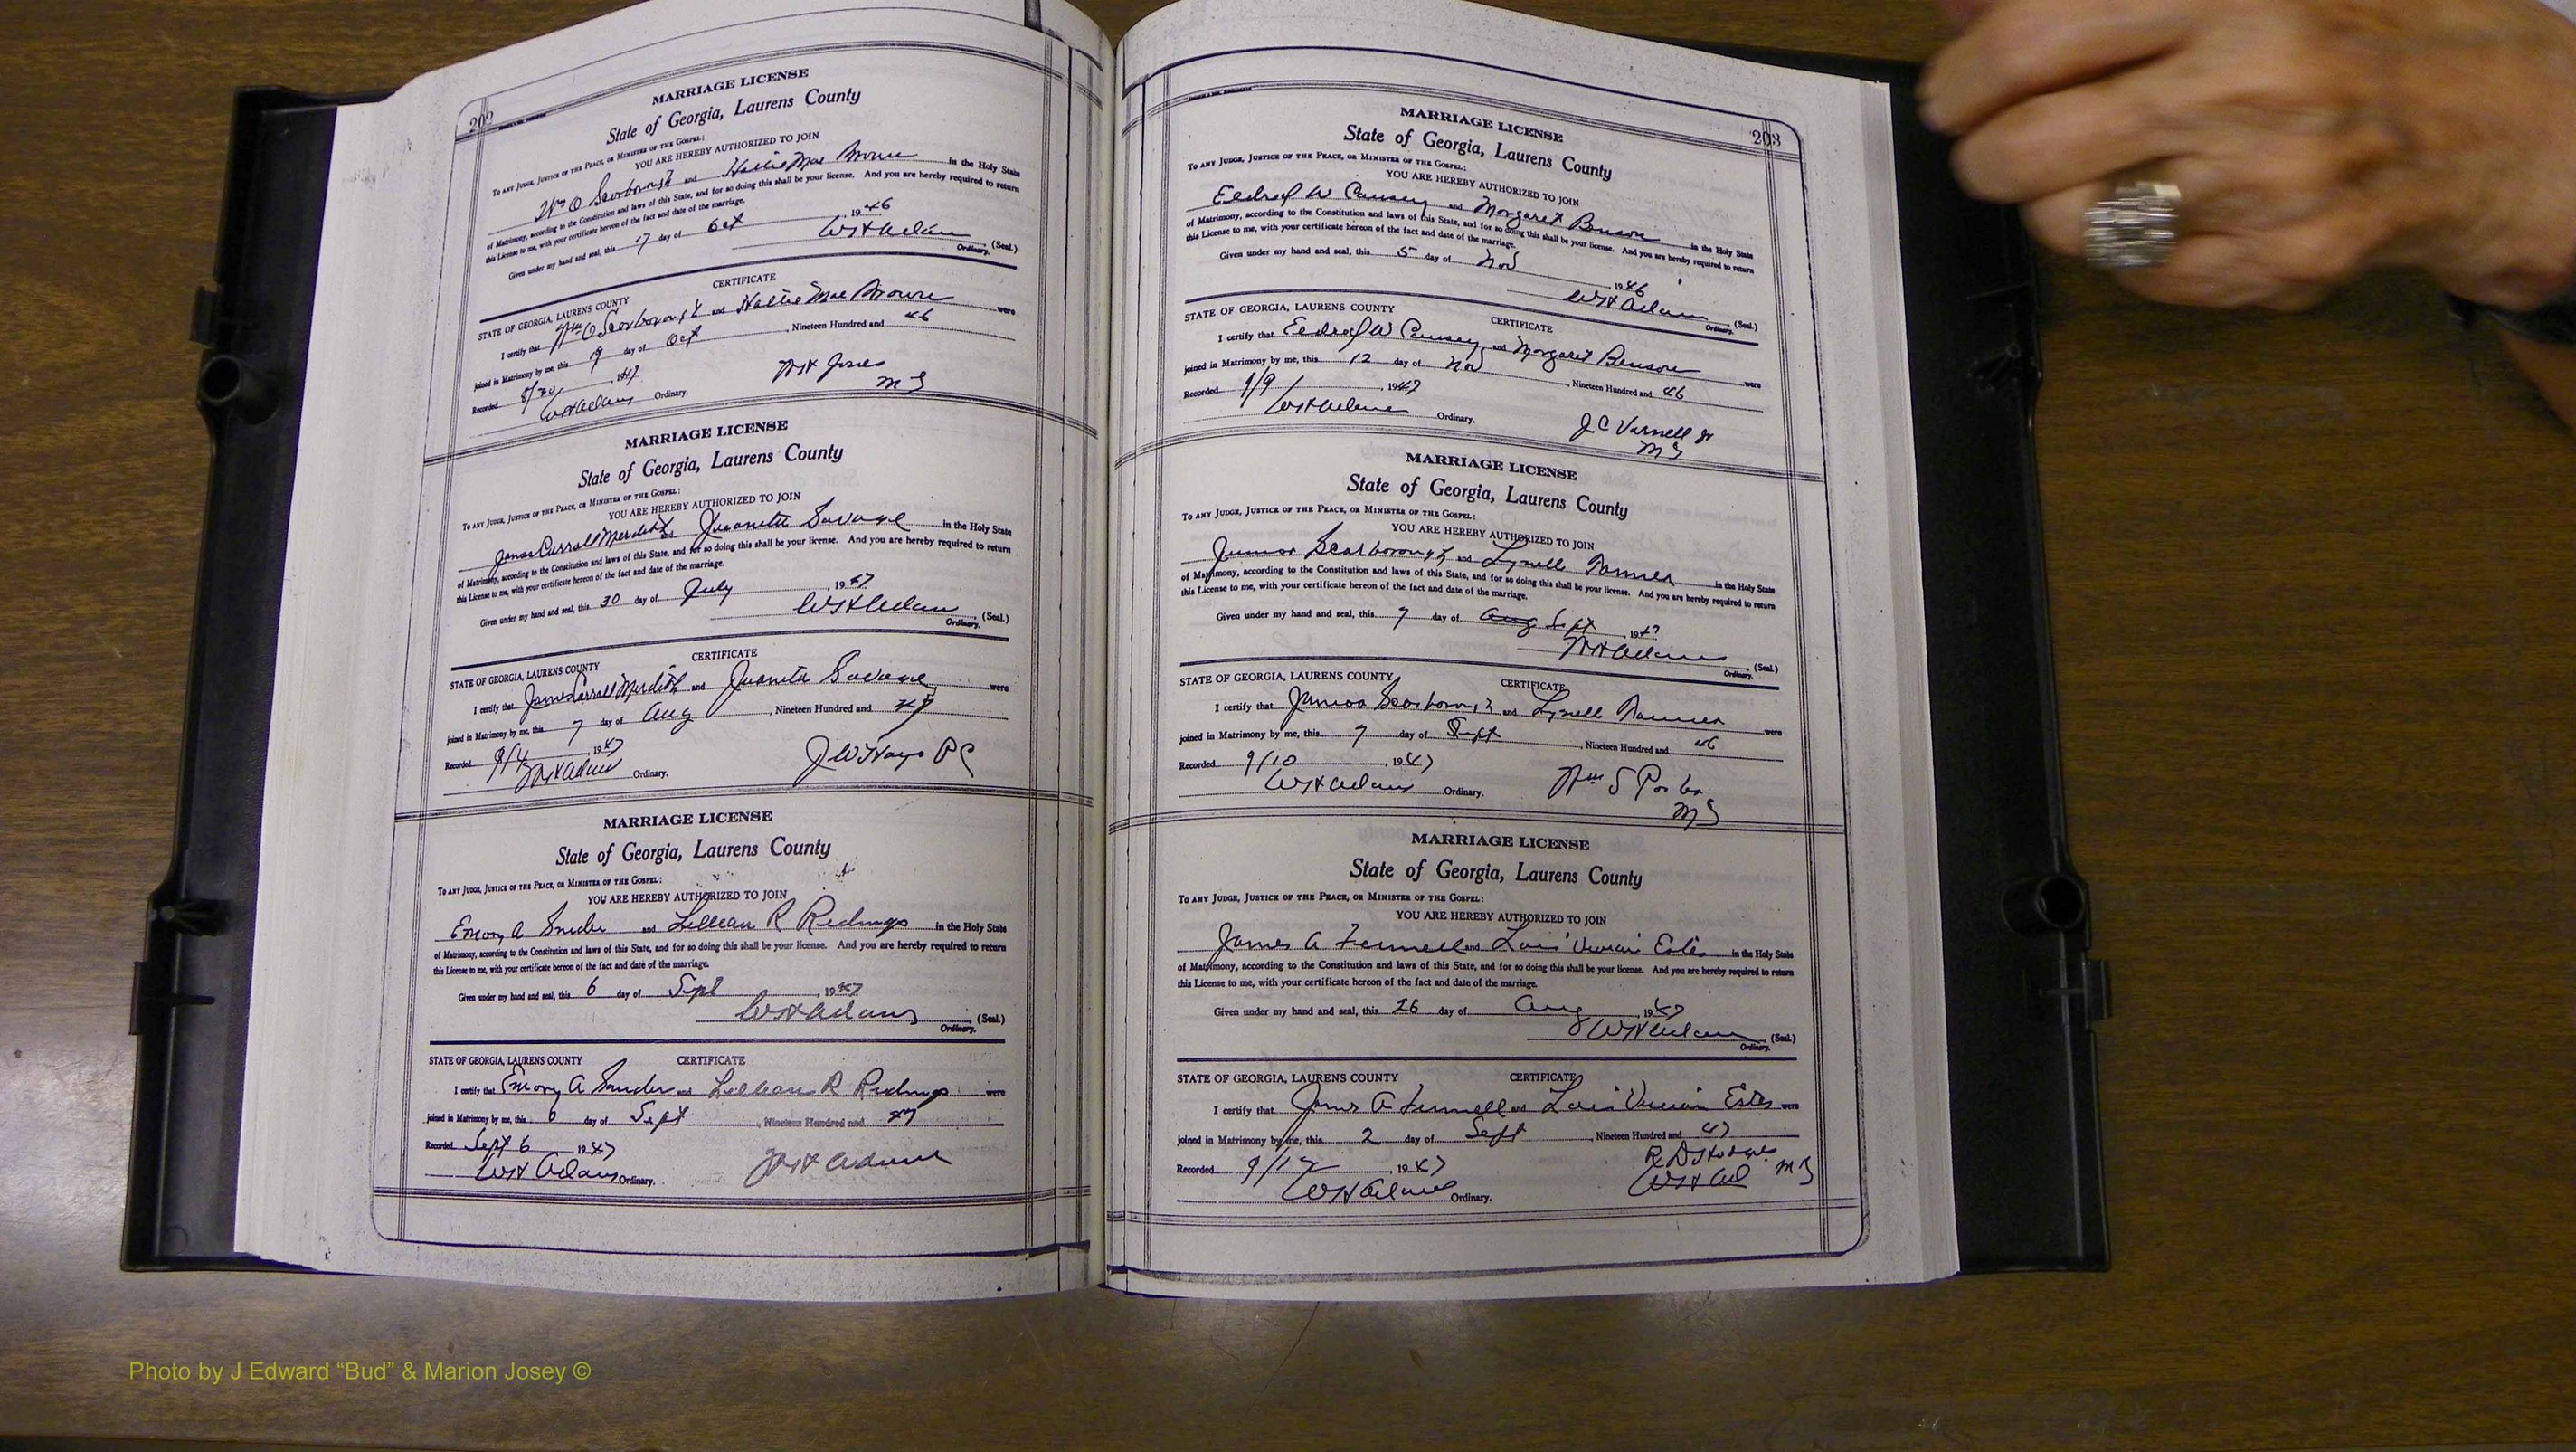 202
MARRIAGE LICENSE
State of Georgia, Laurens County
To ANY JUDGE, JUSTICE OF THE PEACE, OR MINISTER OF THE GOSPEL:
YOU ARE HEREBY AUTHORIZED TO JOIN
Wm O Scarborough and Hallie Mae Brown in the Holy State
of Matrimony, according to the Constitution and laws of this State, and for so doing this shall be your license. And you are hereby required to return
this License to me, with your certificate hereon of the fact and date of the marriage.
Given under my hand and seal, this 17 day of Oct 1946
WH Adams (Seal.)
Ordinary.
CERTIFICATE
STATE OF GEORGIA, LAURENS COUNTY
I certify that Wm O Scarborough and Hallie Mae Brown were
joined in Matrimony by me, this 19 day of Oct, Nineteen Hundred and 46
Recorded 8/30, 1947
WH Adams Ordinary.
WH Jones
MG
MARRIAGE LICENSE
State of Georgia, Laurens County
To ANY JUDGE, JUSTICE OF THE PEACE, OR MINISTER OF THE GOSPEL:
YOU ARE HEREBY AUTHORIZED TO JOIN
James Carroll Meredith Juanita Savage in the Holy State
of Matrimony, according to the Constitution and laws of this State, and for so doing this shall be your license. And you are hereby required to return
this License to me, with your certificate hereon of the fact and date of the marriage.
Given under my hand and seal, this 30 day of July, 1947
WH Adams (Seal.)
Ordinary.
CERTIFICATE
STATE OF GEORGIA, LAURENS COUNTY
I certify that James Carroll Meredith and Juanita Savage were
joined in Matrimony by me, this 7 day of Aug, Nineteen Hundred and 47
Recorded 9/4, 1947
WH Adams Ordinary.
J W Hays P C
MARRIAGE LICENSE
State of Georgia, Laurens County
To ANY JUDGE, JUSTICE OF THE PEACE, OR MINISTER OF THE GOSPEL:
YOU ARE HEREBY AUTHORIZED TO JOIN
Emory A Snider and Lillian R Ridings in the Holy State
of Matrimony, according to the Constitution and laws of this State, and for so doing this shall be your license. And you are hereby required to return
this License to me, with your certificate hereon of the fact and date of the marriage.
Given under my hand and seal, this 6 day of Sept, 1947
WH Adams (Seal.)
Ordinary.
STATE OF GEORGIA, LAURENS COUNTY CERTIFICATE
I certify that Emory A Snider and Lillian R Ridings were
joined in Matrimony by me, this 6 day of Sept, Nineteen Hundred and 47
Recorded Sept 6 1947
WH Adams Ordinary.
WH Adams
203
MARRIAGE LICENSE
State of Georgia, Laurens County
To ANY JUDGE, JUSTICE OF THE PEACE, OR MINISTER OF THE GOSPEL:
YOU ARE HEREBY AUTHORIZED TO JOIN
W Causey and Margaret Benson in the Holy State
of Matrimony, according to the Constitution and laws of this State, and for so doing this shall be your license. And you are hereby required to return
this License to me, with your certificate hereon of the fact and date of the marriage.
Given under my hand and seal, this 5 day of Nov 1946
WH Adams (Seal.)
Ordinary.
STATE OF GEORGIA, LAURENS COUNTY CERTIFICATE
I certify that W Causey and Margaret Benson were
joined in Matrimony by me, this 12 day of Nov, Nineteen Hundred and 46
Recorded 9/9, 1947
WH Adams Ordinary.
J C Varnell Jr
MG
MARRIAGE LICENSE
State of Georgia, Laurens County
To ANY JUDGE, JUSTICE OF THE PEACE, OR MINISTER OF THE GOSPEL:
YOU ARE HEREBY AUTHORIZED TO JOIN
Junior Scarborough and Lynell Tanner in the Holy State
of Matrimony, according to the Constitution and laws of this State, and for so doing this shall be your license. And you are hereby required to return
this License to me, with your certificate hereon of the fact and date of the marriage.
Given under my hand and seal, this 7 day of Aug Sept, 1947
WH Adams (Seal.)
Ordinary.
STATE OF GEORGIA, LAURENS COUNTY CERTIFICATE
I certify that Junior Scarborough and Lynell Tanner were
joined in Matrimony by me, this 7 day of Sept, Nineteen Hundred and 46
Recorded 9/10, 1947
WH Adams Ordinary.
Wm S
MG
MARRIAGE LICENSE
State of Georgia, Laurens County
To ANY JUDGE, JUSTICE OF THE PEACE, OR MINISTER OF THE GOSPEL:
YOU ARE HEREBY AUTHORIZED TO JOIN
James A Fennell and Lois Vivian Estes in the Holy State
of Matrimony, according to the Constitution and laws of this State, and for so doing this shall be your license. And you are hereby required to return
this License to me, with your certificate hereon of the fact and date of the marriage.
Given under my hand and seal, this 26 day of Aug, 1947
WH Adams (Seal.)
Ordinary.
STATE OF GEORGIA, LAURENS COUNTY CERTIFICATE
I certify that James A Fennell and Lois Vivian Estes were
joined in Matrimony by me, this 2 day of Sept, Nineteen Hundred and 47
Recorded 9/12, 1947
WH Adams Ordinary.
R D Hodges
MG
Photo by J Edward “Bud” & Marion Josey ©